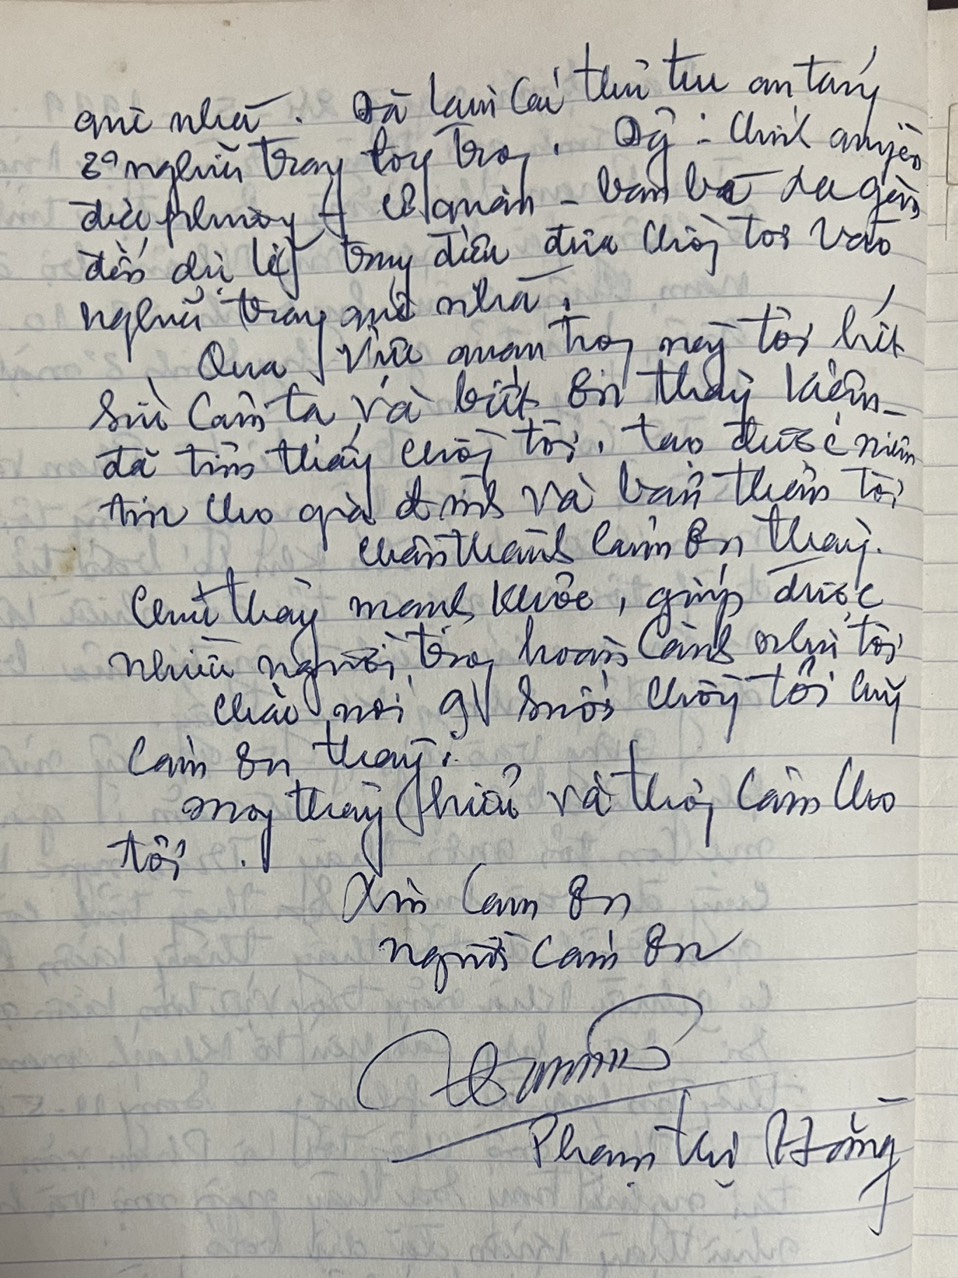 quê nhà. Đã làm các thủ tục an táng
ở nghĩa trang long trọng. Có: chính quyền
địa phương + cơ quan - bạn bè xa gần
đến dự lễ truy điệu đưa chồng tôi vào
nghĩa trang quê nhà.
Qua việc quan trọng này tôi hết
sức cảm tạ và biết ơn thầy Kiêm -
đã tìm thấy chồng tôi, tạo được niềm
tin cho gia đình và bản thân tôi
chân thành cảm ơn thầy.
Chúc thầy mạnh khỏe, giúp được
nhiều người trong hoàn cảnh như tôi
chồng tôi cũng
cảm ơn thầy.
mong thầy hiểu và thông cảm cho
tôi.
Xin cảm ơn
người cảm ơn
Phạm Thị Hồng